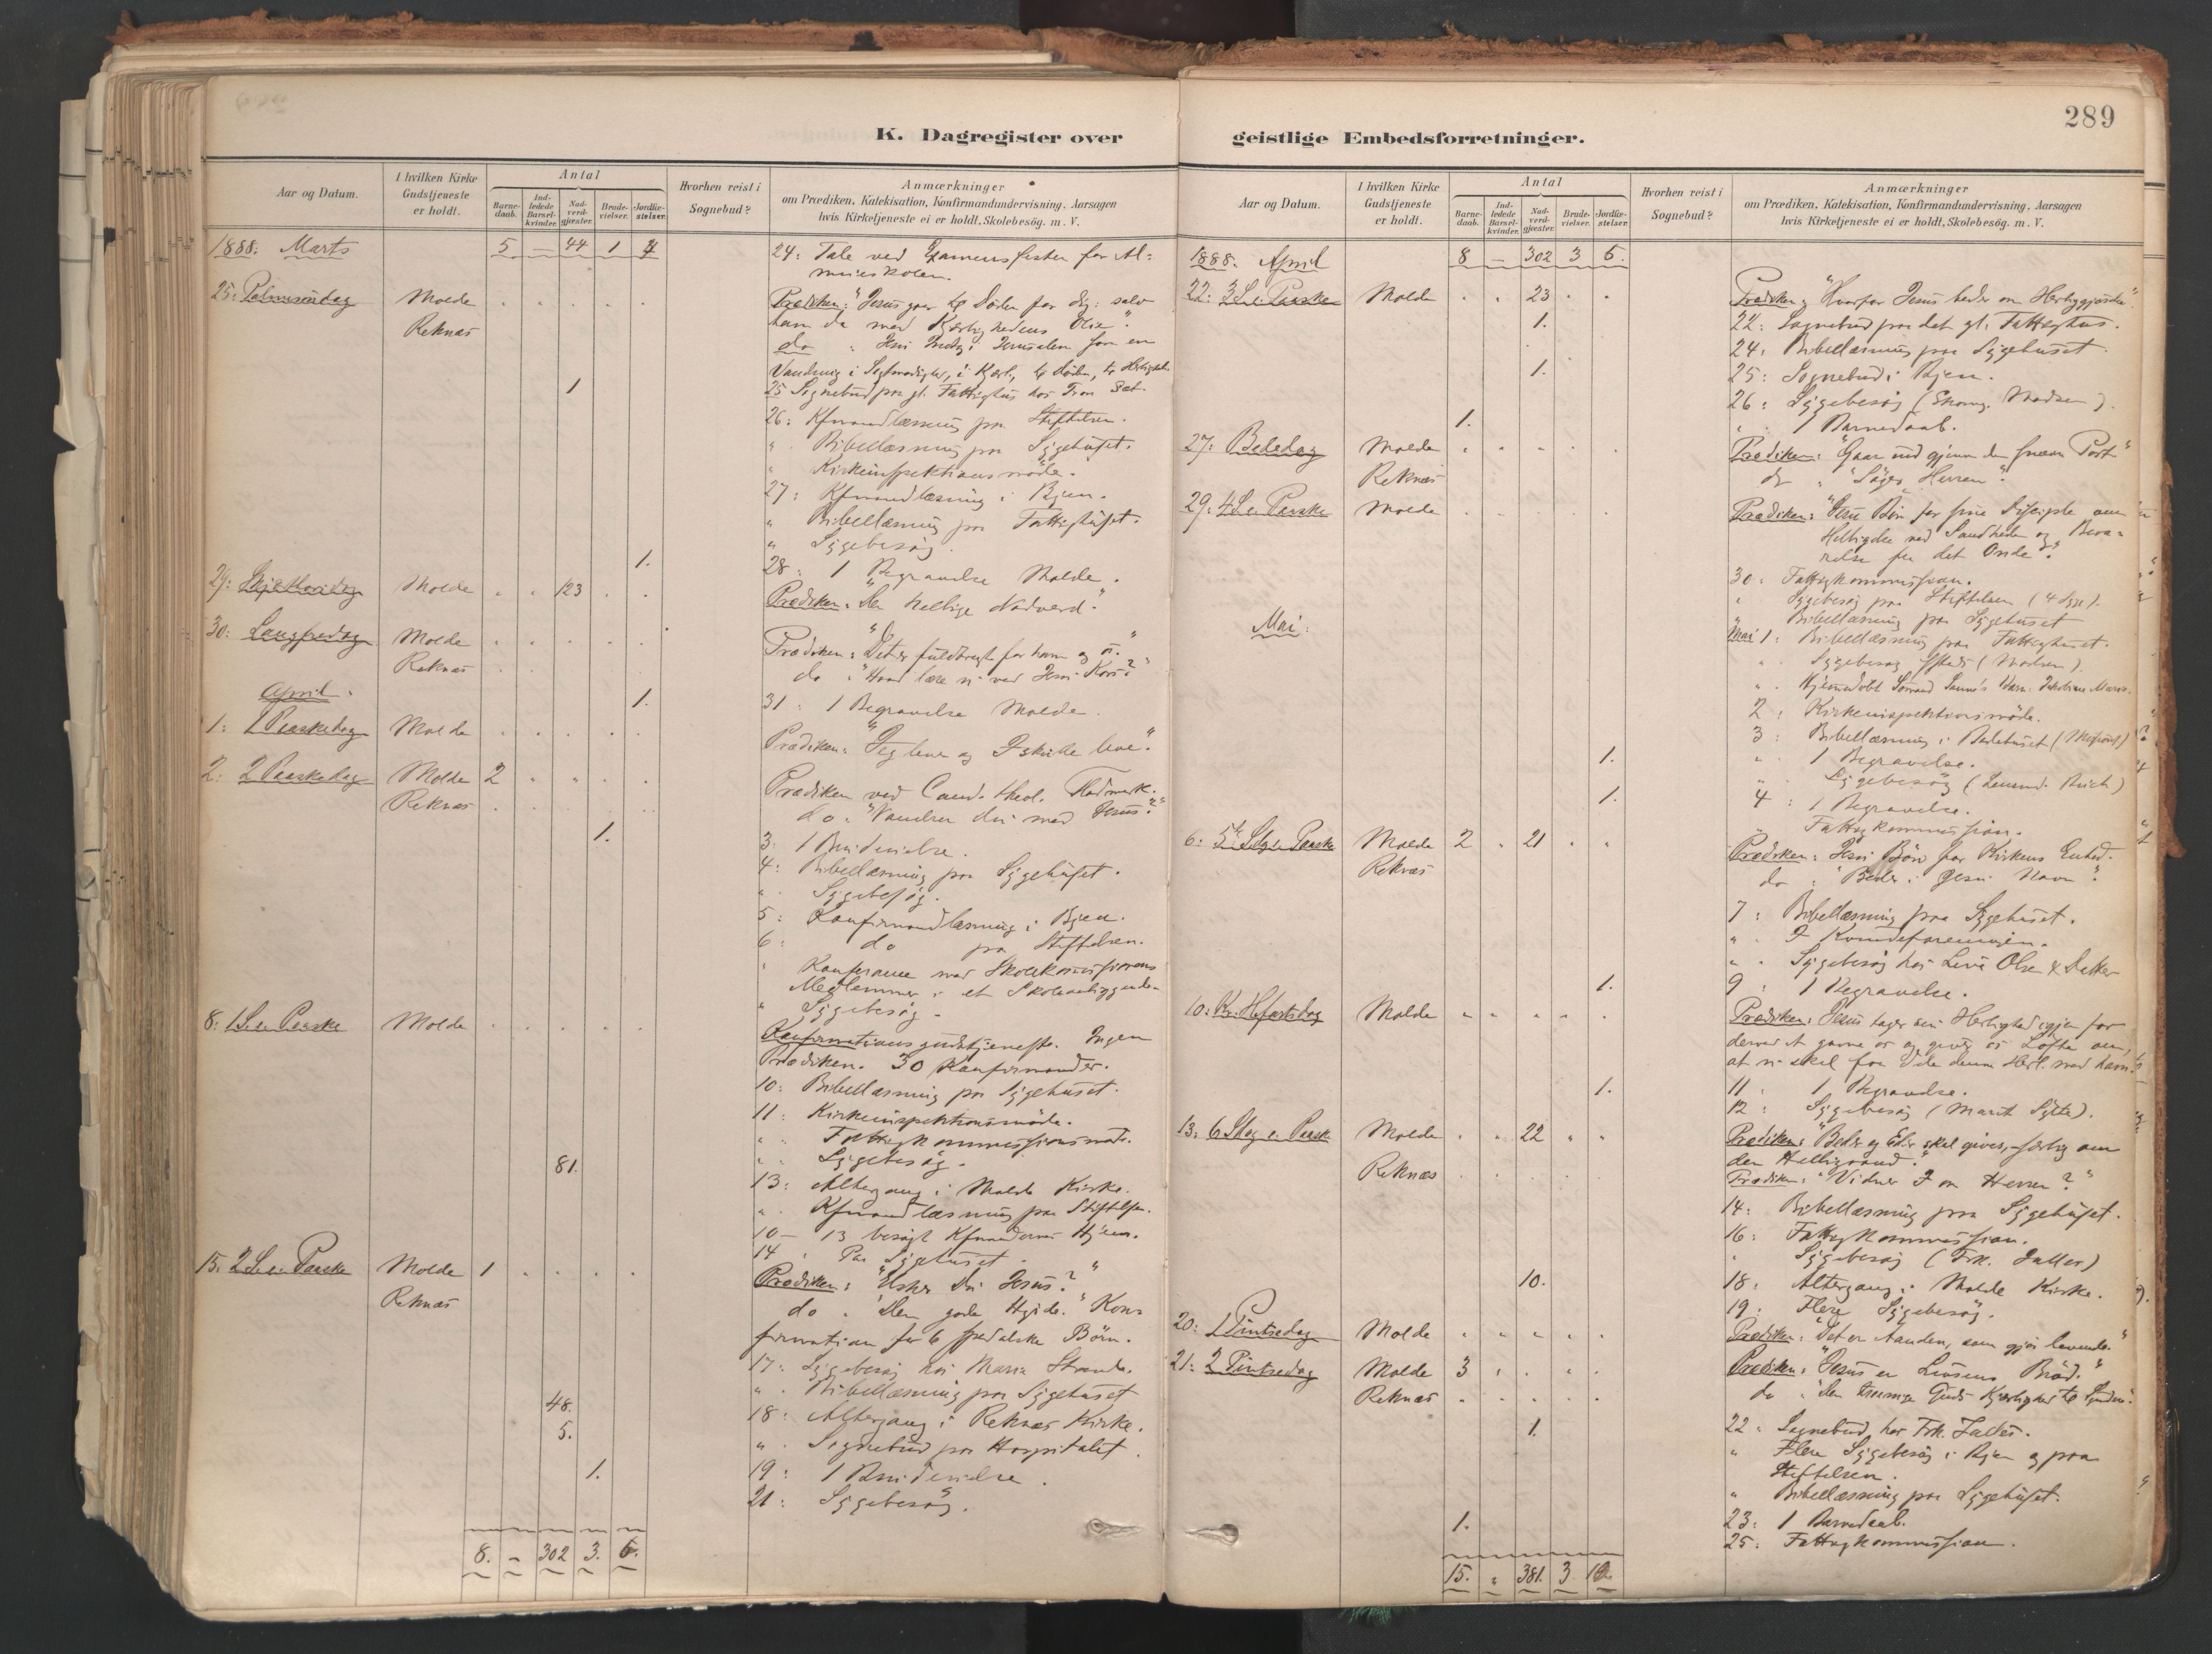 289
K. Dagregister over
Aar og Datum.
I hvilken Kirke Gudstjeneste er holdt.
Antal
Barne-daab.
Ind-ledede Barsel-kvinder.
Nad-verd-gjester.
Brude-vielser.
Jordfæ-stelser.
Hvorhen reist i Sognebud?
Anmærkninger
om Prædiken, Katekisation, Konfirmandundervisning, Aarsagen
hvis Kirketjeneste ei er holdt, Skolebesøg. m. V.
1888. Marts 5 — 44 1 4
24: Tale ved Examensfesten for Al=
mueskolen.
25: Palmesøndag Molde
Prædiken: "Jesus gaar til Døden for dig: salv
Reknæs
ham da med Kjærlighedens Olie".
do
1
25 Sognebud paa gl. Fattighus hos
26: Kfmandlæsning paa Stiftelsen.
" Bibellæsning paa Sygehuset.
" Kirkeinspektionsmøde.
27: Kfmandlæsning i Byen.
" Bibellæsning paa Fattighuset.
" Sygebesøg.
1.
28: 1 Begravelse Molde.
29: Skjærthorsdag Molde 123
Prædiken: "Den hellige Nadverd."
30: Langfredag Molde
Prædiken: "Det er fuldbragt for ham og os."
Reknæs
do "Hvad lære vi ved Jesu Kors?"
April.
1.
31: 1 Begravelse Molde.
1: 1 Paaskedag Molde
Prædiken: "Jeg lever og I skulle leve".
2: 2 Paaskedag Molde 2
Prædiken ved Cand. theol.
Reknæs
do: "Vandrer du med Jesus?"
1.
3: 1 Brudevielse.
4: Bibellæsning paa Sygehuset.
" Sygebesøg.
5: Konfirmandlæsning i Byen.
6: do paa Stiftelsen.
Konferance med Skolekommissionens
Medlemmer i et Skoleanliggende.
" Sygebesøg.
8: 1 S. e. Paaske Molde
Konfirmationsgudstjeneste. Ingen
Prædiken. 30 Konfirmander.
10: Bibellæsning paa Sygehuset.
11: Kirkeinspektionsmøde.
" Fattigkommissionsmøde.
" Sygebesøg.
81.
13: Altergang i Molde Kirke.
" Kfmandlæsning paa Stiftelsen.
10 – 13 besøgt Kfmandernes Hjem.
14 Paa Sygehuset.
15. 2 S. e. Paaske Molde 1
Prædiken: "Elsker du Jesus?"
Reknæs
do "Den gode Hyrde." Kon=
firmation for 6 spedalske Børn.
17: Sygebesøg hos Maria Strande.
" Bibellæsning paa Sygehuset
48.
18: Altergang i Reknæs Kirke.
5.
" Sognebud paa Hospitalet.
1.
19: 1 Brudevielse.
21: Sygebesøg.
8. – 302 3. 6.
geistlige Embedsforretninger.
Aar og Datum.
I hvilken Kirke Gudstjeneste er holdt.
Antal
Barne-daab.
Ind-ledede Barsel-kvinder.
Nad-verd-gjester.
Brude-vielser.
Jordfæ-stelser.
Hvorhen reist i Sognebud?
Anmærkninger
om Prædiken, Katekisation, Konfirmandundervisning, Aarsagen
hvis Kirketjeneste ei er holdt, Skolebesøg. m. V.
1888. April 8 – 302 3 6.
22: 3 S. e. Paaske Molde 23
Prædiken: "Hvorfor Jesus beder om Herliggjørelse".
1.
22: Sognebud paa det gl. Fattighus.
24: Bibellæsning paa Sygehuset.
1.
25: Sognebud i Byen.
26: Sygebesøg (Skomg. Madsen).
1.
" 1 Barnedaab.
27: Bededag Molde
Prædiken: "Gaar ind gjennem den snævre Port"
Reknæs
do "Søger Herren".
29: 4 S. e. Paaske Molde
Prædiken: "Jesu Bøn for sine Disciple om
Helligelse ved Sandheden og Beva=
relse fra det Onde".
30: Fattigkommission.
" Sygebesøg paa Stiftelsen (4 Syge).
" Bibellæsning paa Sygehuset
Mai:
Mai 1: Bibellæsning paa Fattighuset.
" Sygebesøg (Madsen).
" Hjemmedøbt
2: Kirkeinspektionsmøde.
3: Bibellæsning i Bedehuset
1.
" 1 Begravelse.
" Sygebesøg
1.
4: 1 Begravelse.
" Fattigkommission.
6: 5te S. e. Paaske Molde 2 21
Prædiken: Jesu Bøn for Kirkens Enhed.
Reknæs
do: "Beder i Jesu Navn".
7: Bibellæsning paa Sygehuset.
" I Kvindeforeningen.
" Sygebesøg hos Olsen
1.
9: 1 Begravelse.
10: Kr. Hfartsdag Molde
Prædiken: Jesus tager sin Herlighed igjen for
derved at gavne os og giver os Løfte om,
at vi skal faa Dele denne Herl. med ham.
1.
11: 1 Begravelse.
12: Sygebesøg (Marit Sylte).
13: 6 Sdg e. Paaske Molde 22
Prædiken: "Beder og Eder skal gives, særlig om
den Helligaand".
Reknæs
Prædiken: "Vidner I om Herren?"
14: Bibellæsning paa Sygehuset.
16: Fattigkommission.
" Sygebesøg
10.
18: Altergang i Molde Kirke.
19: Flere Sygebesøg.
20: 1 Pintsedag Molde
Prædiken: "Det er Aanden, som gjør levende."
21: 2 Pintsedag Molde 3
Prædiken: "Jesus er Livsens Brød."
Reknæs
do
1.
22: Sognebud hos Frk.
" Flere Sygebesøg i Byen og paa
Stiftelsen.
" Bibellæsning paa Sygehuset.
1.
23: 1 Barnedaab.
25: Fattigkommission.
15. " 381. 3 10.